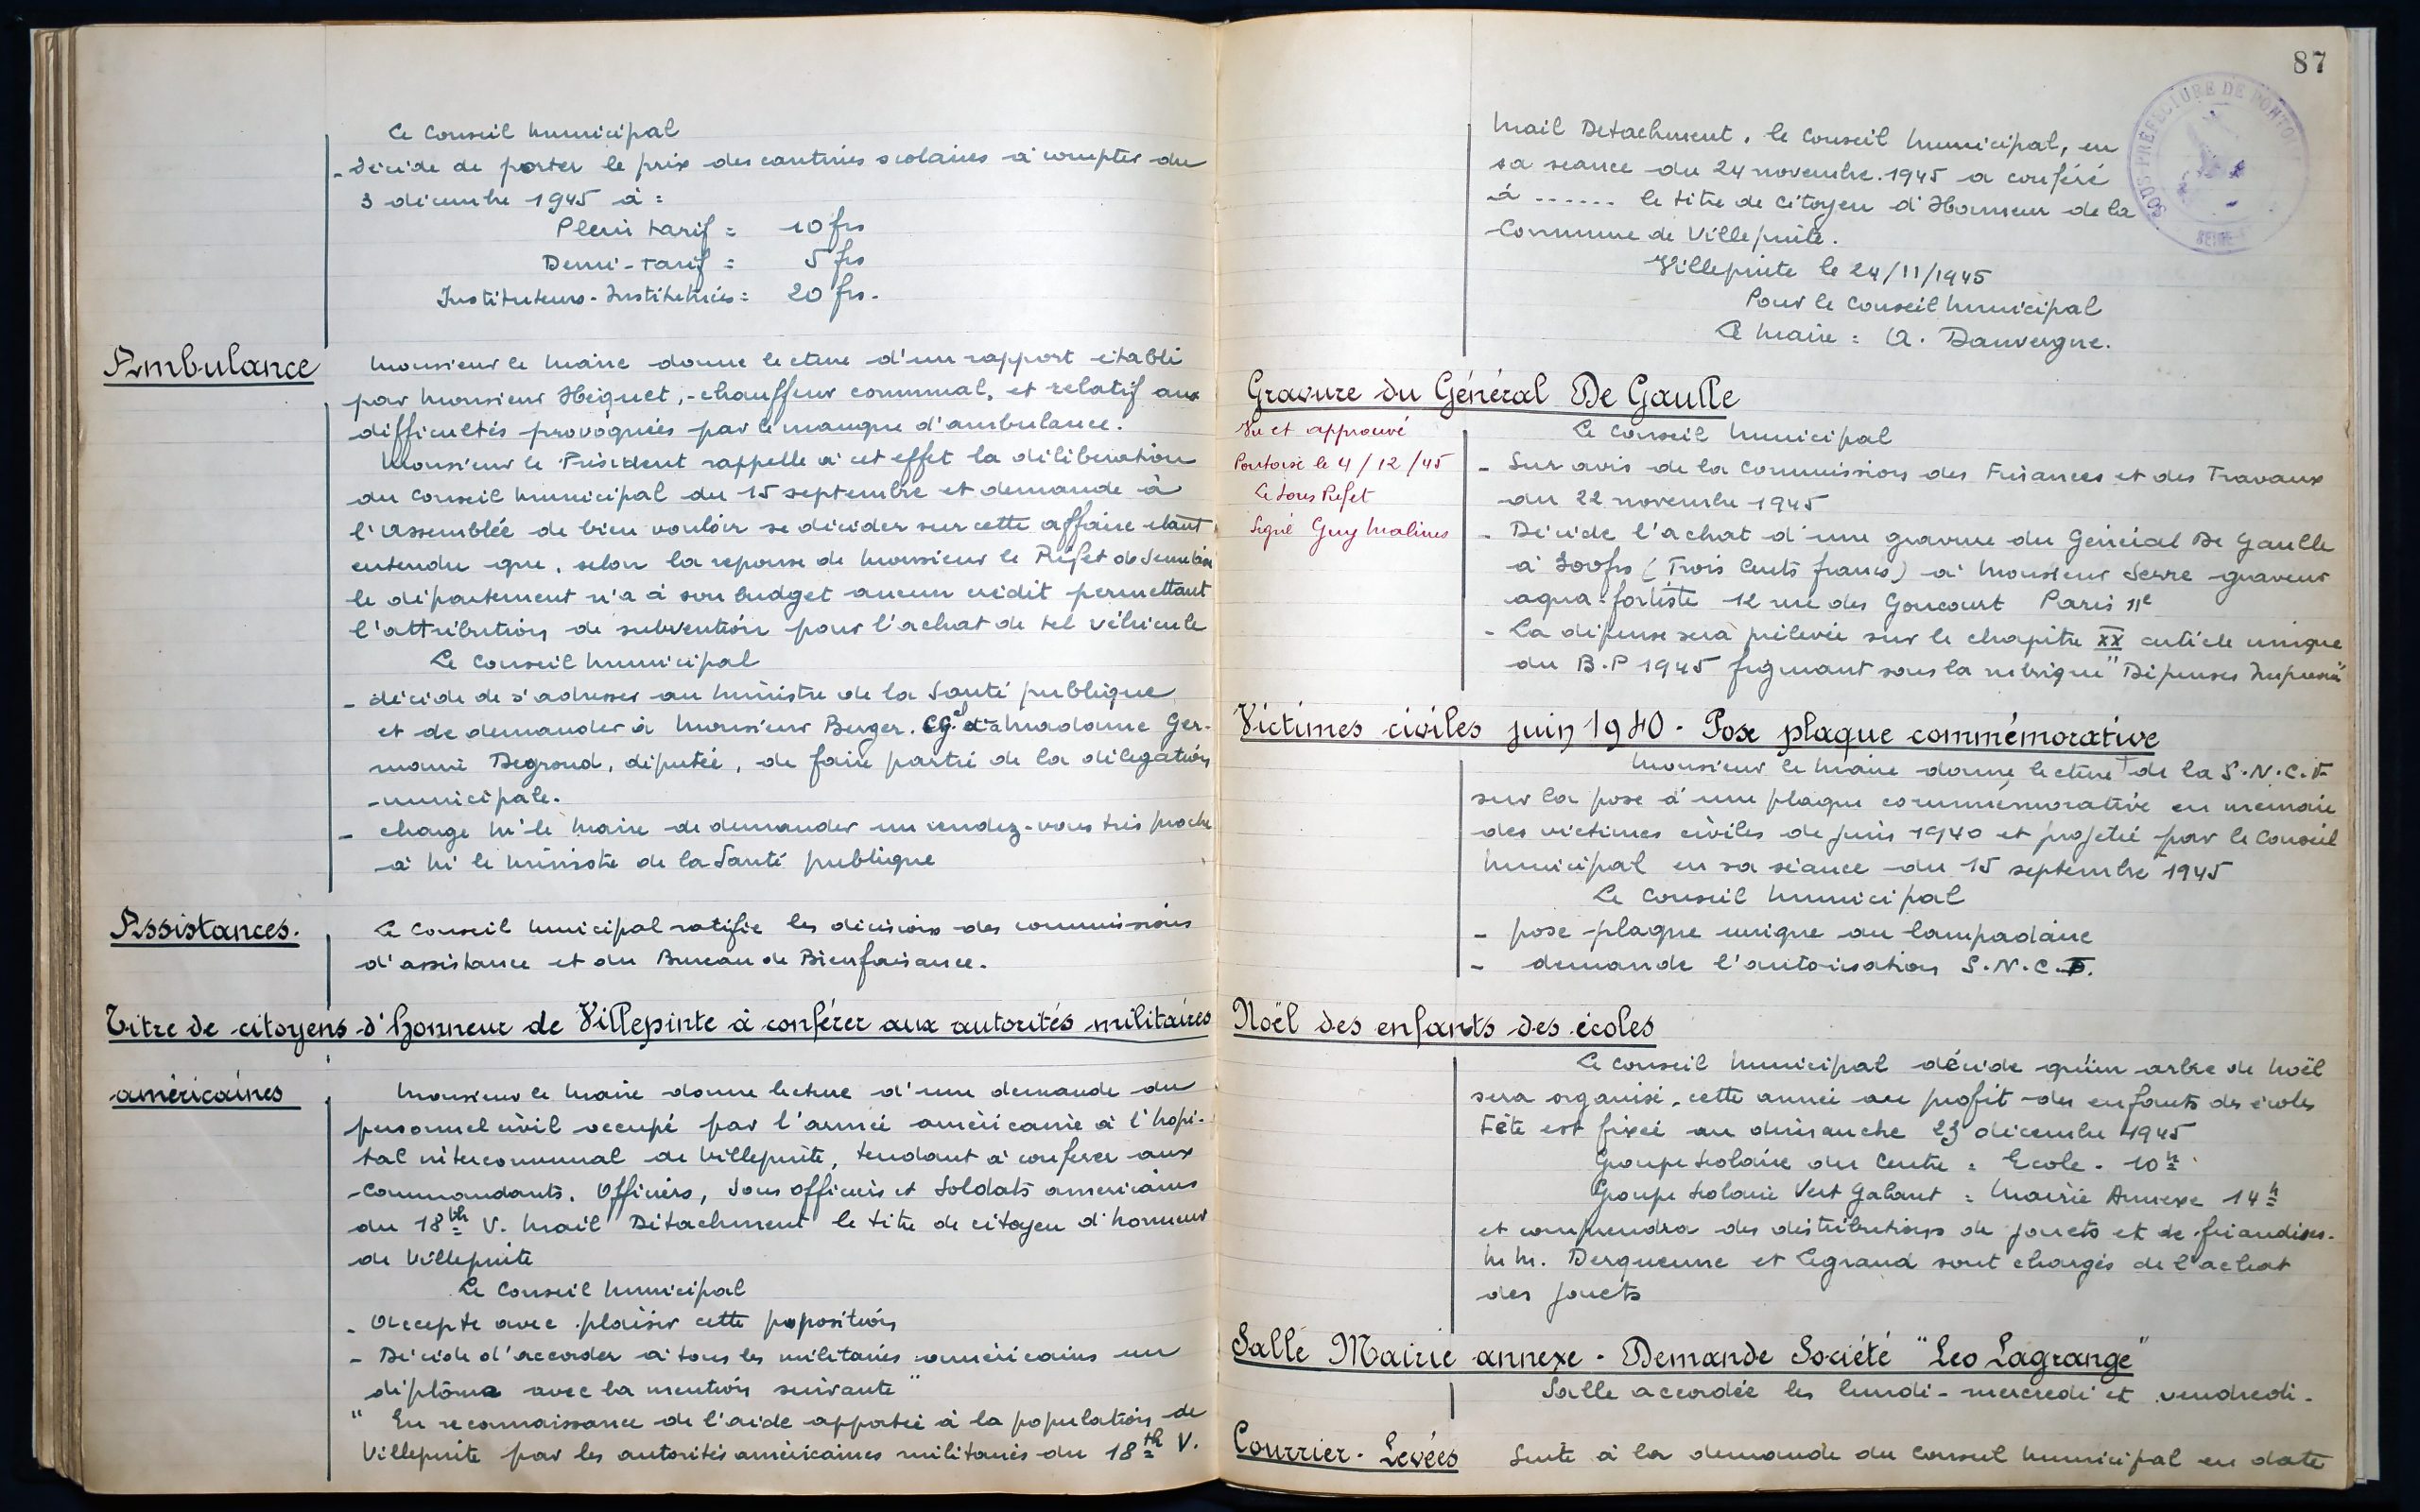 Le Conseil Municipal
- Décide de porter le prix des cantines scolaires à compter du
3 décembre 1945 à =
Plein tarif = 10 frs
Demi-Tarif = 5 frs
Instituteurs-Institutrices = 20 frs.
Ambulance
Monsieur le Maire donne lecture d'un rapport établi
par Monsieur Heiquet, chauffeur communal, et relatif aux
difficultés provoquées par le manque d'ambulance.
Monsieur le Président rappelle à cet effet la délibération
du Conseil Municipal du 15 septembre et demande à
l'Assemblée de bien vouloir se décider sur cette affaire étant
entendu que, selon la reponse de Monsieur le Préfet de Seine & Oise
le département n'a à son budget aucun crédit permettant
l'attribution de subvention pour l'achat de tel véhicule
Le Conseil Municipal
- décide de s'adresser au Ministre de la Santé publique
et de demander à Monsieur Berger. CGal et à Madame Ger-
maine Degrond, députée, de faire partie de la délégation
municipale.
- charge Mr le Maire de demander un rendez-vous très proche
à Mr le Ministre de la Santé publique
Assistances.
Le Conseil Municipal ratifie les décisions des commissions
d'assistance et du Bureau de Bienfaisance.
Titre de citoyens d'honneur de Villepinte à conférer aux autorités militaires
américaines
Monsieur le Maire donne lecture d'une demande du
personnel civil occupé par l'armée américaine à l'hopi-
tal intercommunal de Villepinte, tendant à conferer aux
Commandants, Officiers, Sous officiers et Soldats americains
du 18th V. Mail Détachment le titre de citoyen d'honneur
de Villepinte
Le Conseil Municipal
- Accepte avec plaisir cette poposition
- Décide d'accorder à tous les militaires américains un
diplôme avec la mention suivante "
" En reconnaissance de l'aide apportée à la population de
Villepinte par les autorités américaines militaires du 18th V.
87
SOUS-PREFECTURE DE PONTOISE
Mail Detachment, le Conseil Municipal, en
sa seance du 24 novembre 1945 a conféré
à ...... le titre de Citoyen d'Honneur de la
Commune de Villepinte.
Villepinte le 24/11/1945
Pour le Conseil Municipal
Le Maire = A. Dauvergne.
Gravure du Général De Gaulle
Vu et approuvé
Pontoise le 4/12/45
Le Sous Préfet
Signé Guy Malines
Le Conseil Municipal
- Sur avis de la Commission des Finances et des Travaux
du 22 novembre 1945
- Décide l'achat d'une gravure du Général De Gaulle
à 300frs (Trois Cents francs) à Monsieur Serre graveur
aqua-fortiste 12 rue des Goncourt Paris 11e
- La dépense sera prélevée sur le chapitre XX article unique
du B.P 1945 figurant sous la rubrique "Dépenses Imprévues"
Victimes civiles juin 1940 - Pose plaque commémorative
Monsieur le Maire donne lecture de la S.N.C.F
sur la pose d'une plaque commémorative en mémoire
des victimes civiles de juin 1940 et projetée par le Conseil
Municipal en sa séance du 15 septembre 1945
Le Conseil Municipal
- pose plaque unique au lampadaire
- demande l'autorisation S.N.C.F.
Noël des enfants des écoles
Le Conseil Municipal décide qu'un arbre de Noël
sera organisé, cette année au profit des enfants des écoles
Fête est fixée au dimanche 23 décembre 1945
Groupe Scolaire du Centre = Ecole - 10h
Groupe Scolaire Vert Galant = Mairie Annexe 14h
et comprendra des distributions de jouets et de friandises.
M M. Derquenne et Legrand sont chargés de l'achat
des jouets
Salle Mairie annexe - Demande Société "Leo Lagrange"
Salle accordée les lundi - mercredi et vendredi.
Courrier - Levées
Suite à la demande du Conseil Municipal en date